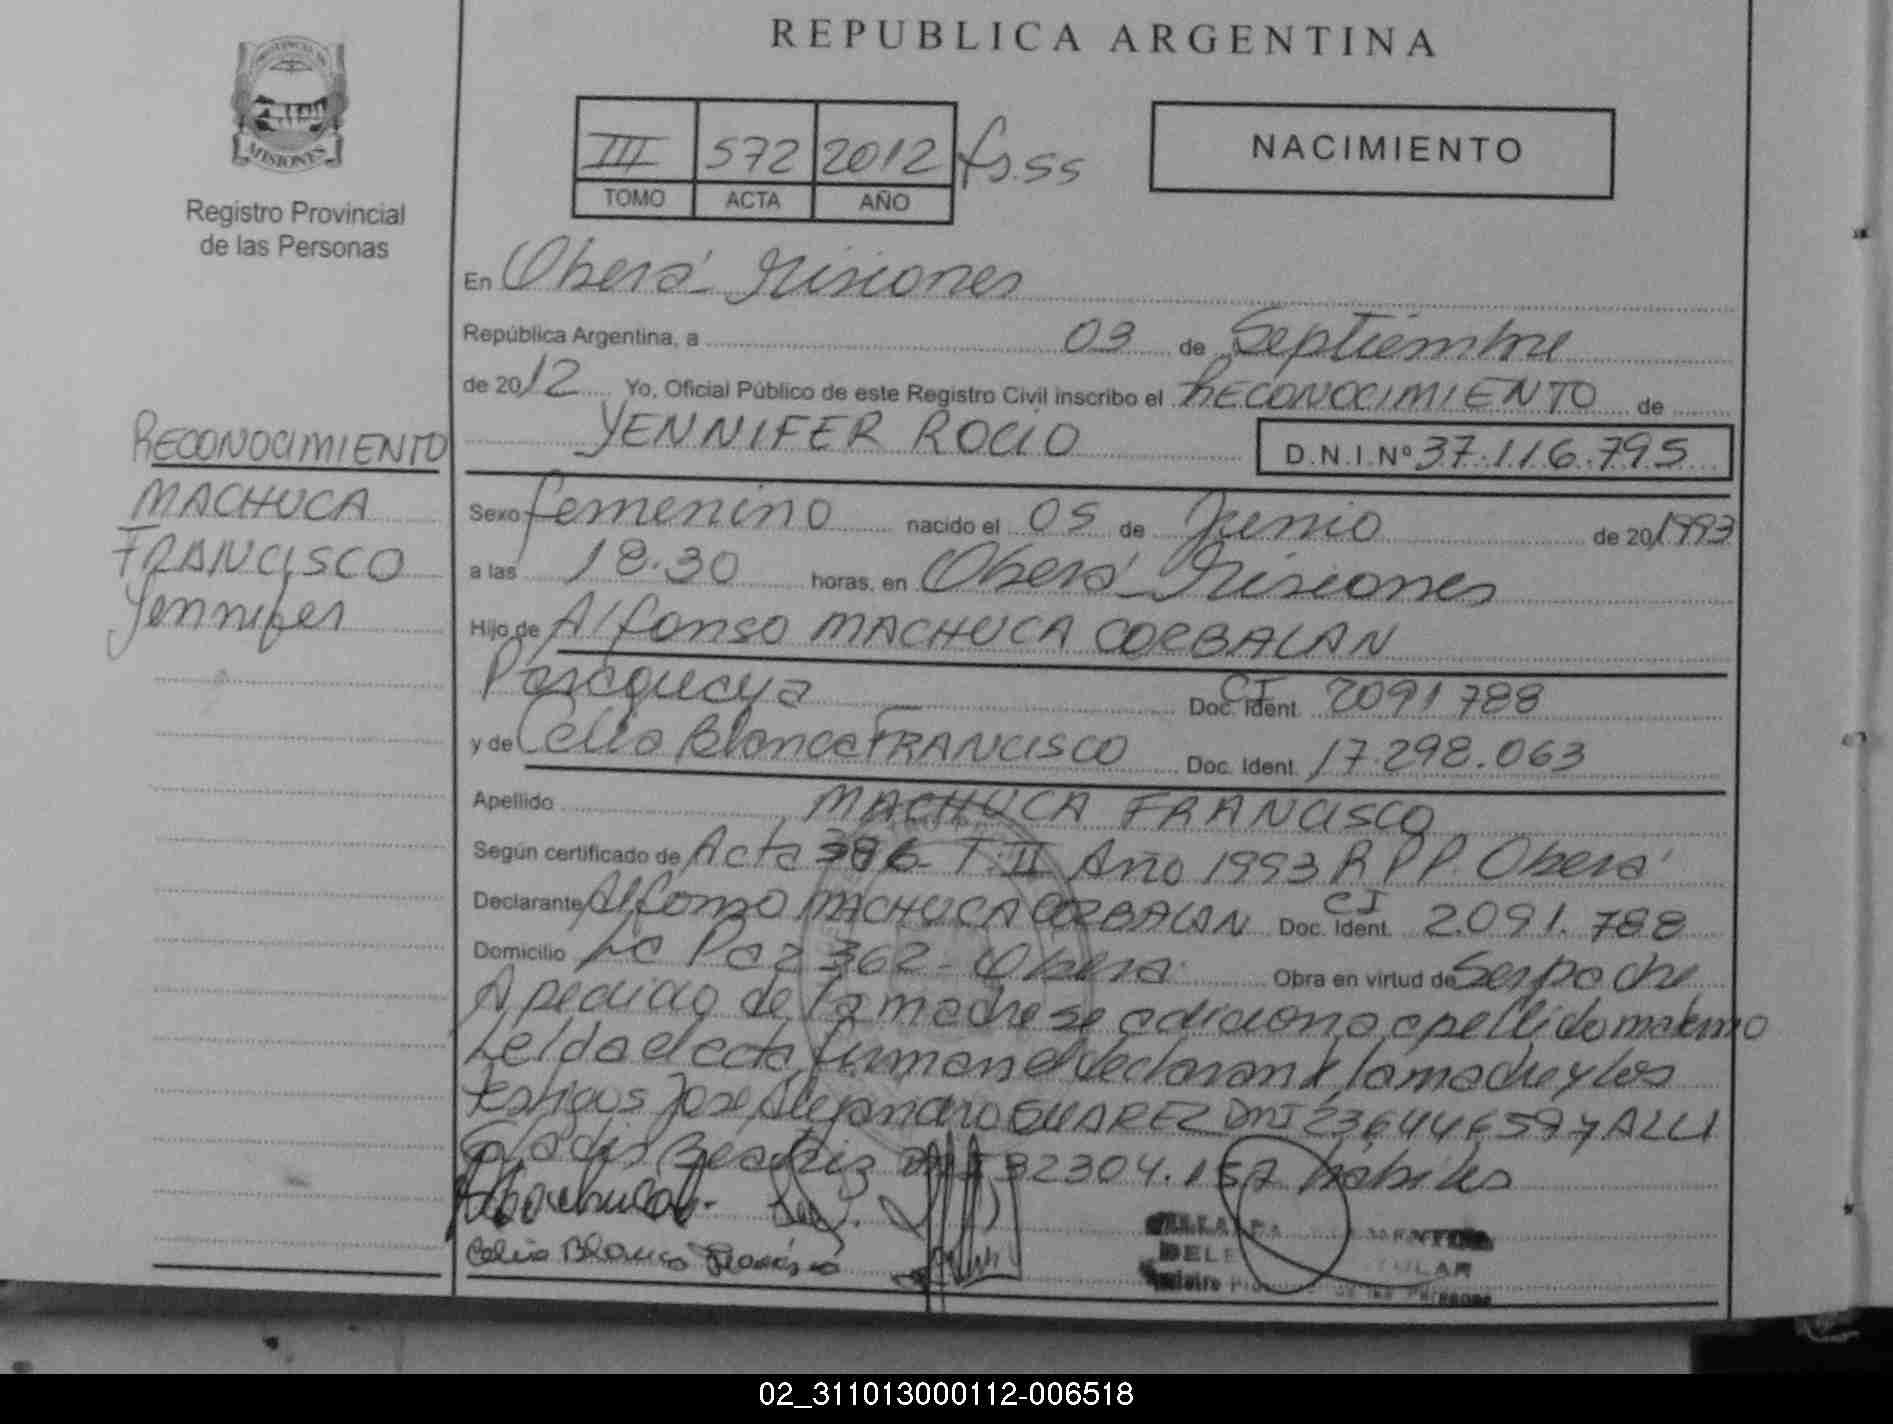 REPUBLICA ARGENTINA
MISIONES
Registro Provincial
de las Personas
III 572 2012 fs. 55
TOMO ACTA AÑO
NACIMIENTO
En Oberá Misiones
República Argentina, a 03 de Septiembre
de 2012 Yo, Oficial Público de este Registro Civil inscribo el RECONOCIMIENTO de
YENNIFER ROCIO D.N.I. Nº 37.116.795
RECONOCIMIENTO
MACHUCA
FRANCISCO
Yennifer
Sexo femenino nacido el 05 de Junio de 20/1993
a las 18.30 horas, en Oberá Misiones
Hijo de Alfonso MACHUCA CORBALAN
Paraguaya Doc. Ident. CI 2091788
y de Celia Blanca FRANCISCO Doc. Ident. 17.298.063
Apellido MACHUCA FRANCISCO
Según certificado de Acta 386 T. II Año 1993 R.P.P. Oberá
Declarante Alfonso MACHUCA CORBALAN Doc. Ident. CI 2.091.788
Domicilio La Paz 362 - Oberá Obra en virtud de Ser padre
A pedido de la madre se adiciona apellido materno
Leída el acta firman el declarante la madre y los
testigos José Alejandro SUAREZ DNI 23644659 y
Gladis Beatriz DNI 32304.157 hábiles
Celia Blanca Francisco
Registro Provincial de las Personas
02_311013000112-006518